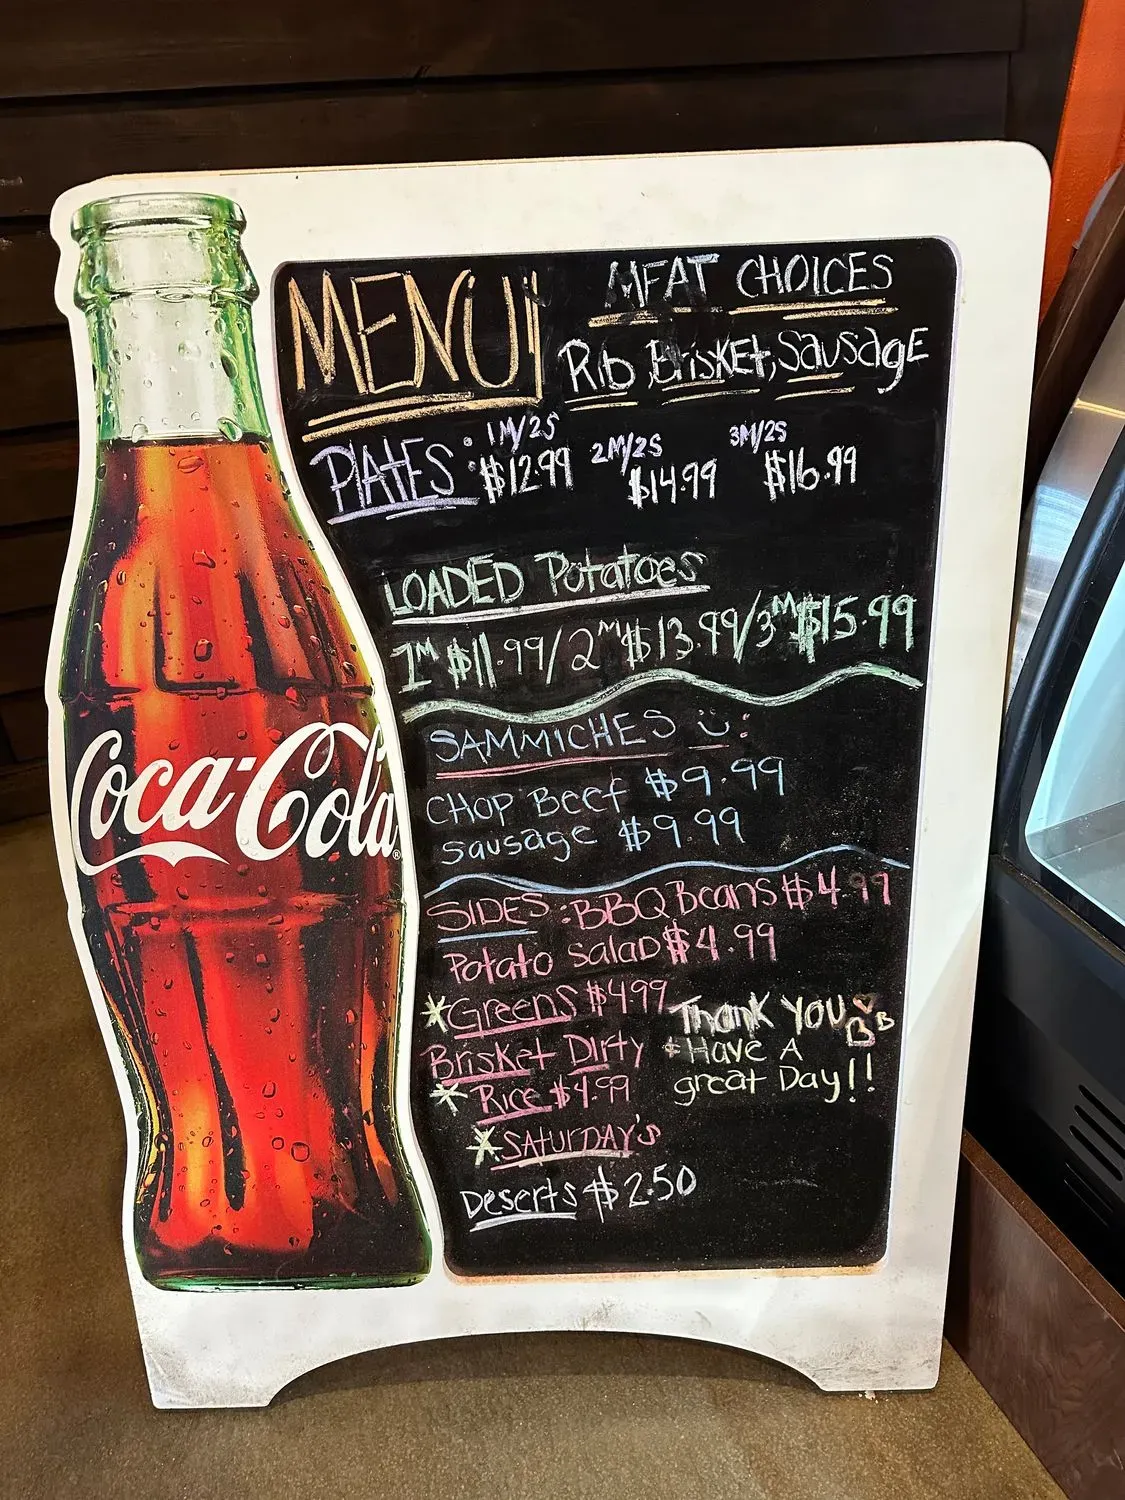 MENU!
MEAT CHOICES
Rib, BrisKEt, SausagE
PLATES: 1M/2S $12.99 2M/2S $14.99 3M/2S $16.99
LOADED Potatoes
1M $11.99/2M $13.99/3M $15.99
SAMMICHES :
CHOP Beef $9.99
Sausage $9.99
SIDES: BBQ Beans $4.99
Potato Salad $4.99
*Greens $4.99
Brisket Dirty
* Rice $4.99
Thank You BB
Have A
great Day!!
*SATURDAY'S
Deserts $2.50
Coca-Cola®